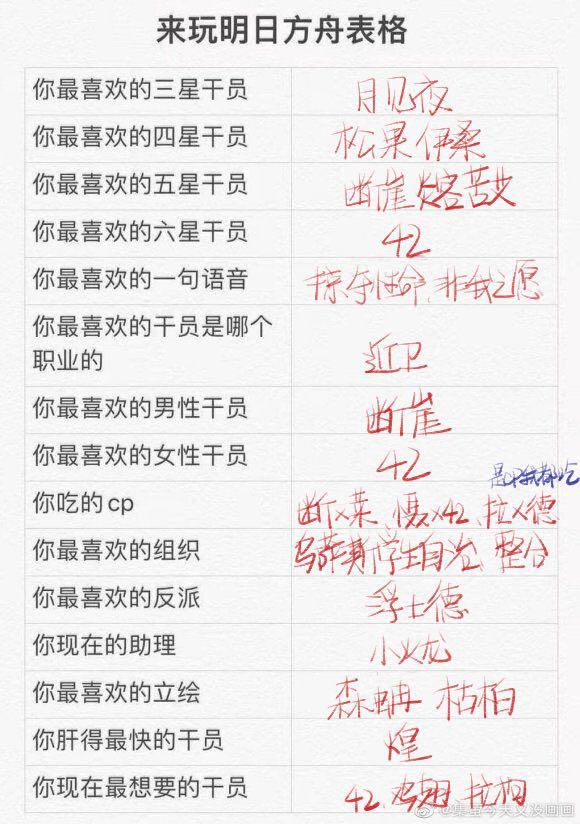 来玩明日方舟表格
你最喜欢的三星干员 月见夜
你最喜欢的四星干员 松果 伊桑
你最喜欢的五星干员 断崖 苦艾
你最喜欢的六星干员 42
你最喜欢的一句语音 掠夺性命、非我之愿
你最喜欢的干员是哪个
职业的 近卫
你最喜欢的男性干员 断崖
你最喜欢的女性干员 42
是cp我都吃
你吃的cp 断x莱、慑x42、拉x德
你最喜欢的组织 乌萨斯学生自治、整合
你最喜欢的反派 浮士德
你现在的助理 小火龙
你最喜欢的立绘 森蚺 枯柏
你肝得最快的干员 煌
你现在最想要的干员 42、鸡翅、拉狗
@集星今天又没画画